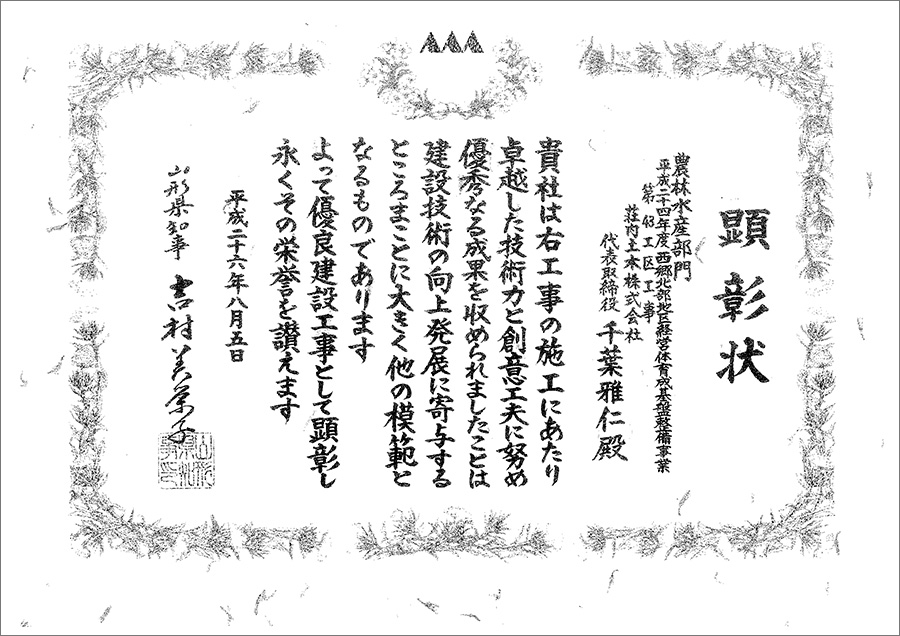 顕彰状
農林水産部門
平成二十四年度 西郷北部地区経営体育成基盤整備事業
第43工区工事
荘内土木株式会社
代表取締役 千葉雅仁殿
貴社は右工事の施工にあたり
卓越した技術力と創意工夫に努め
優秀なる成果を収められましたことは
建設技術の向上発展に寄与する
ところまことに大きく他の模範と
なるものであります
よって優良建設工事として顕彰し
永くその栄誉を讃えます
平成二十六年八月五日
山形県知事 吉村美栄子